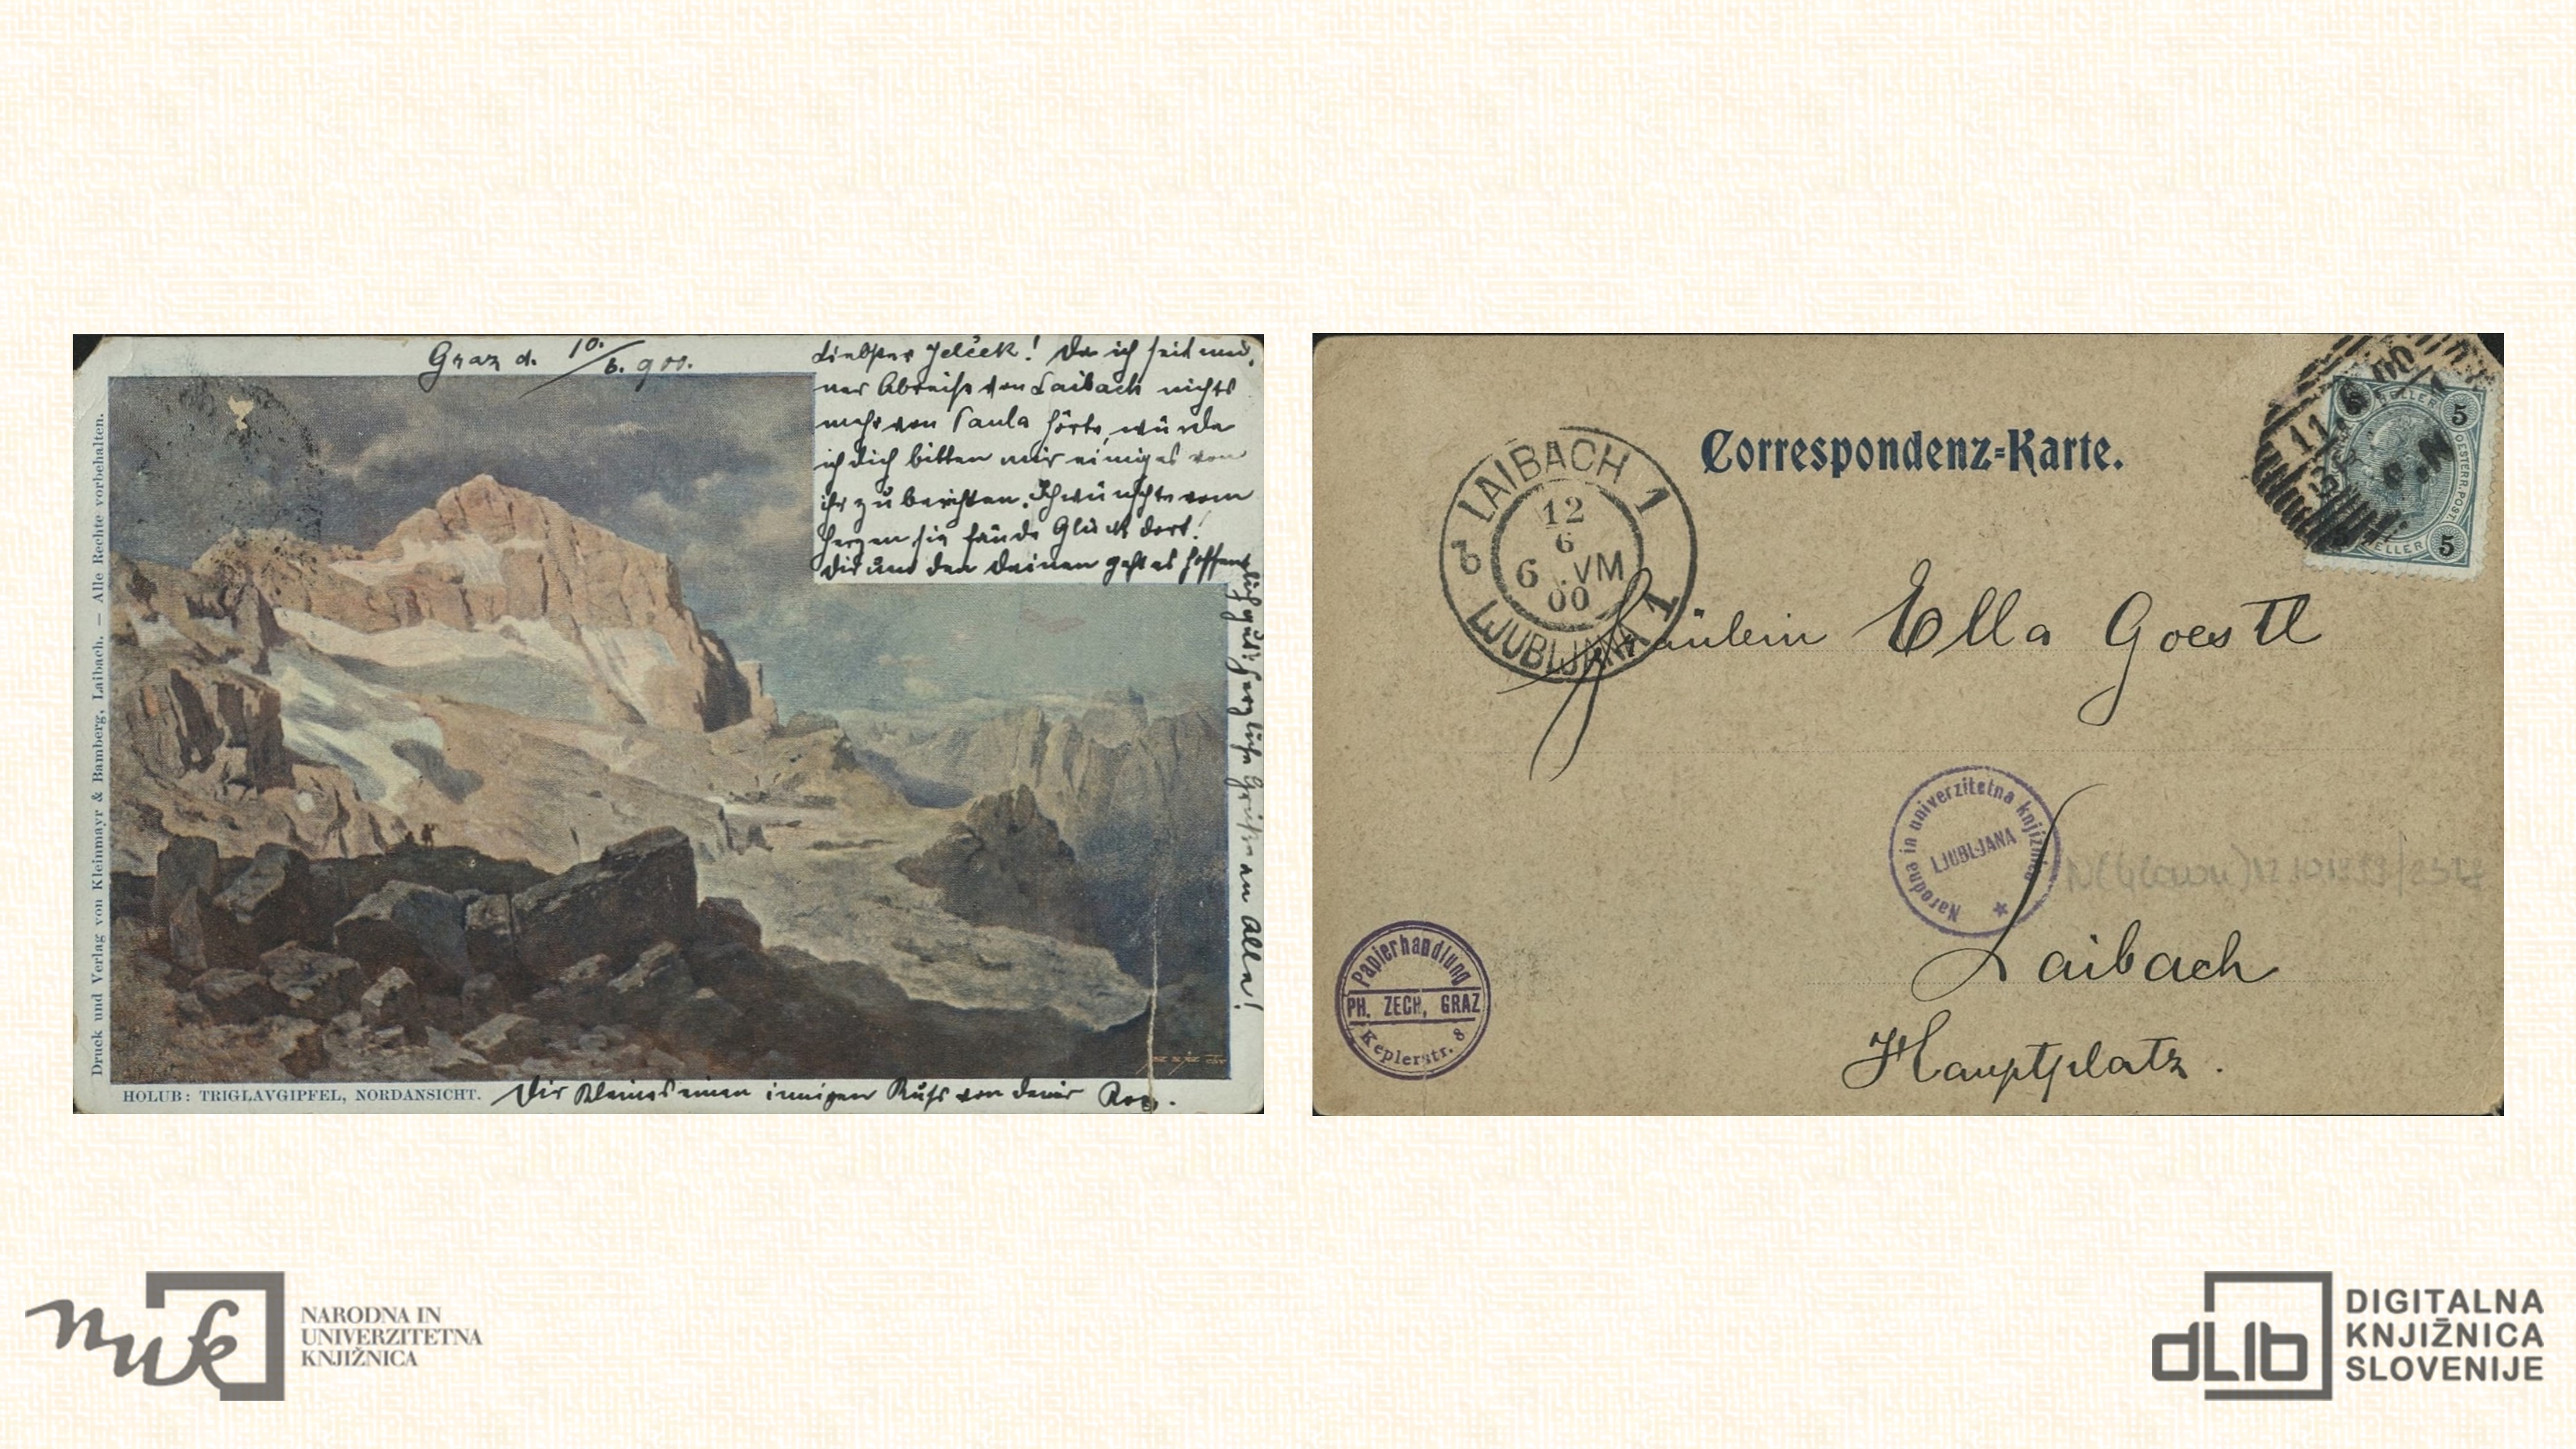 Graz d. 10./6. 900.
Liebster Jelček! Da ich seit mei-
ner Abreise von Laibach nichts
mehr von Paula hörte, würde
ich dich bitten mir einiges von
ihr zu berichten. Ich wünschte vom
Herzen sie fände Glück dort!
Dir und den deinen geht es hoffent
lich gut? Herzliche Grüße an Alle!
Dir kleines einen innigen Kuss von deiner
Druck und Verlag von Kleinmayr & Bamberg, Laibach. — Alle Rechte vorbehalten.
HOLUB: TRIGLAVGIPFEL, NORDANSICHT.
Correspondenz-Karte.
LAIBACH 1
12
6
6 .VM
00
LJUBLJANA 1
b
11 6 00
HELLER
5
5
OESTERR.POST.
HELLER
Fräulein Ella Goestl
Narodna in univerzitetna knjižnica
LJUBLJANA
Laibach
Hauptplatz.
Papierhandlung
PH. ZECH, GRAZ
Keplerstr. 8
nuk
NARODNA IN
UNIVERZITETNA
KNJIŽNICA
dLib
DIGITALNA
KNJIŽNICA
SLOVENIJE